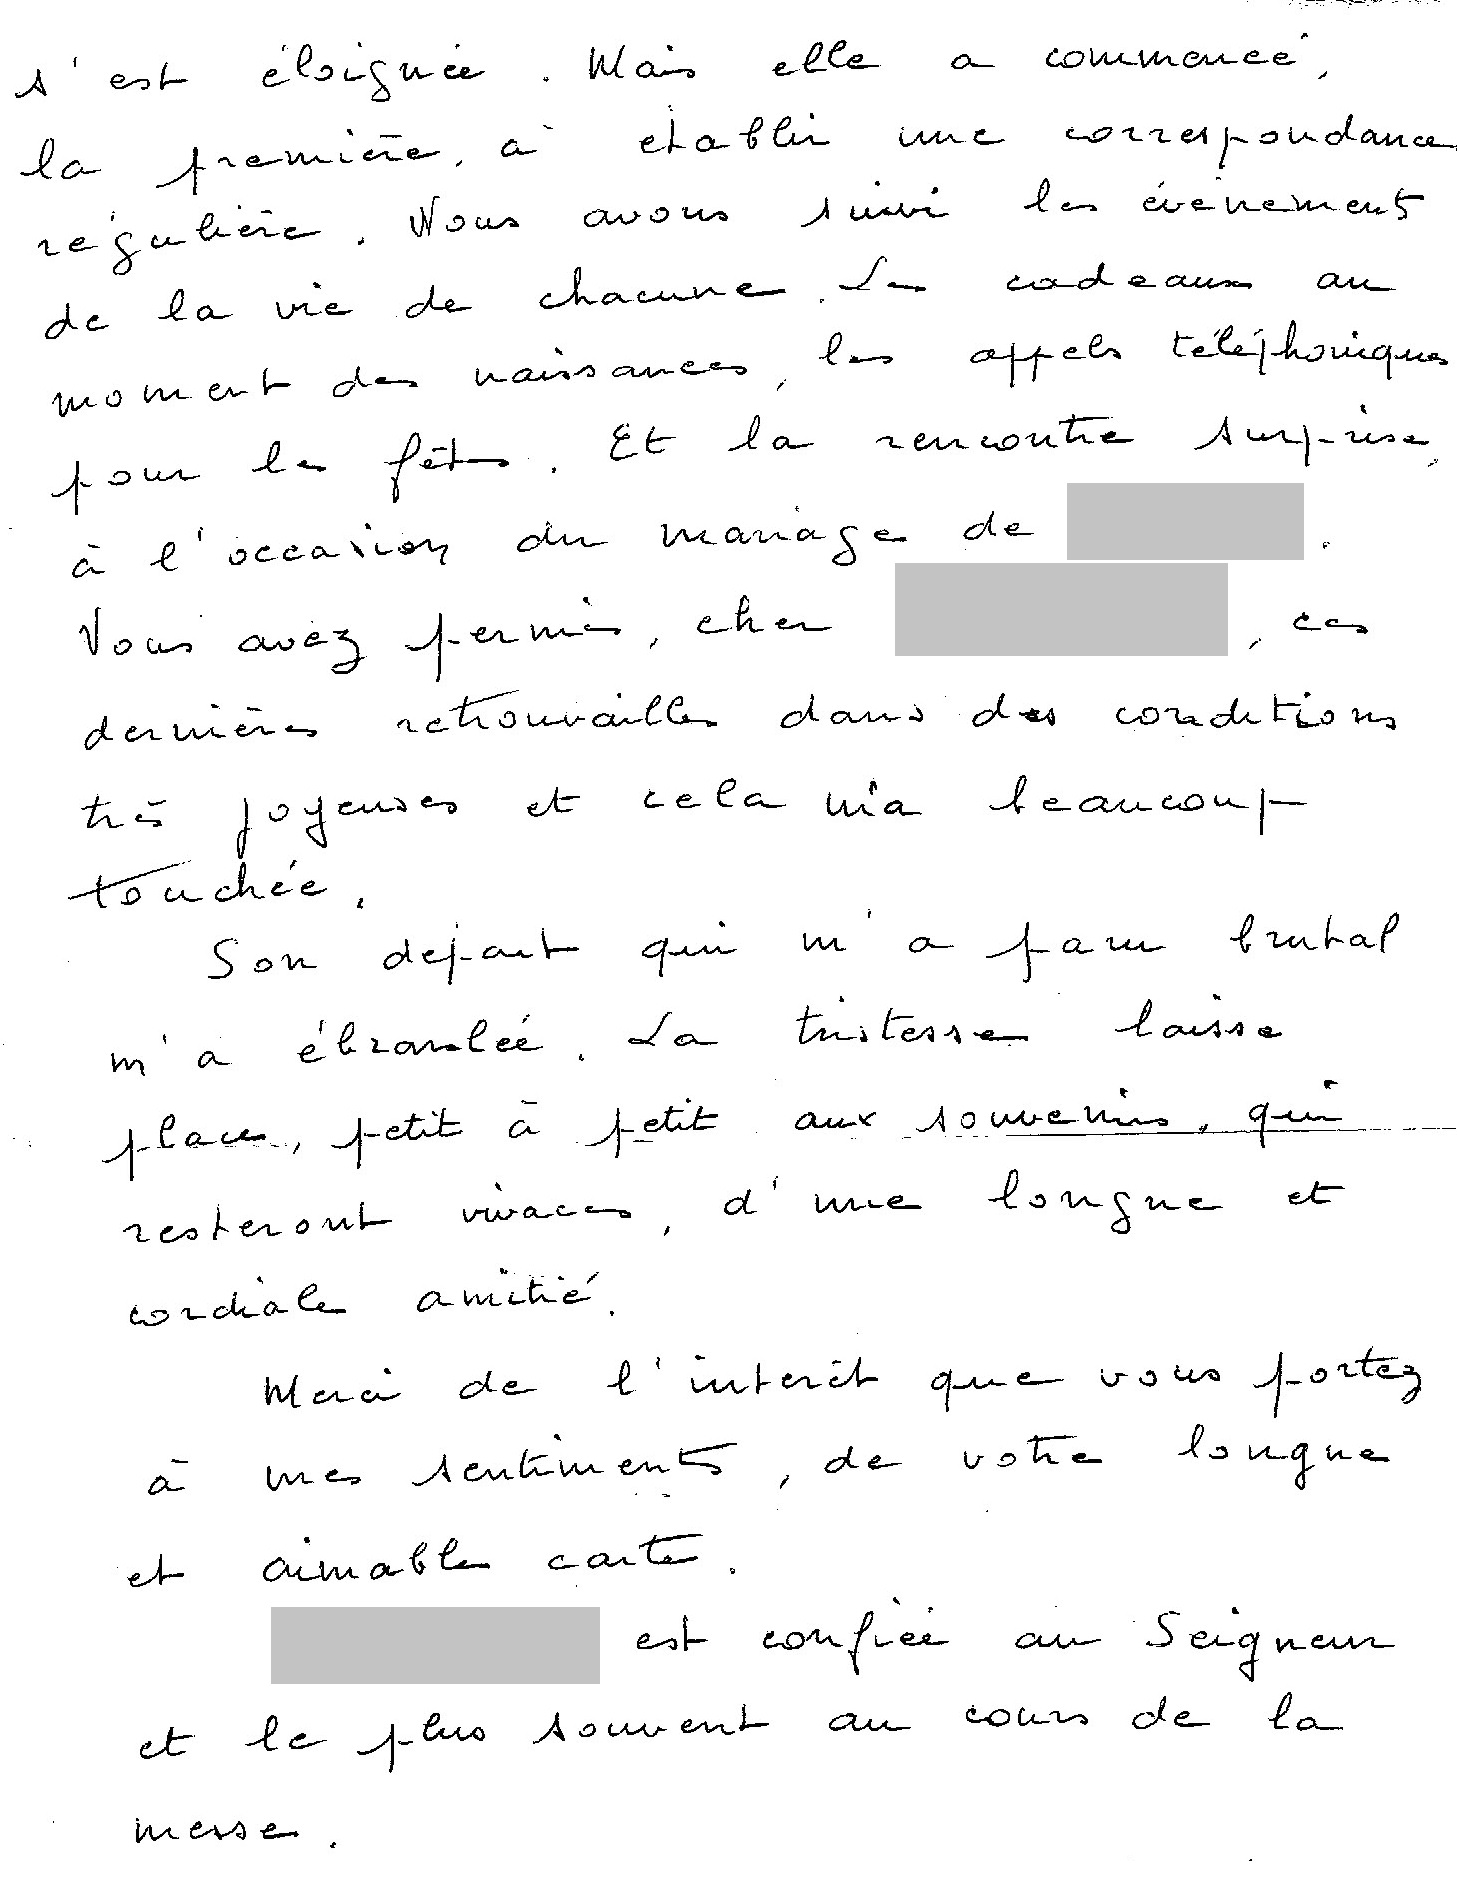 s'est éloignée. Mais elle a commencé,
la première, à établir une correspondance
régulière. Nous avons suivi les événements
de la vie de chacune. Les cadeaux au
moment des naissances, les appels téléphoniques
pour les fêtes. Et la rencontre surprise,
à l'occasion du mariage de .
Vous avez permis, cher , ces
dernières retrouvailles dans des conditions
très joyeuses et cela m'a beaucoup
touchée.
Son départ qui m'a paru brutal
m'a ébranlée. La tristesse laisse
place, petit à petit aux souvenirs, qui
resteront vivaces, d'une longue et
cordiale amitié.
Merci de l'intérêt que vous portez
à mes sentiments, de votre longue
et aimable carte.
est confiée au Seigneur
et le plus souvent au cours de la
messe.